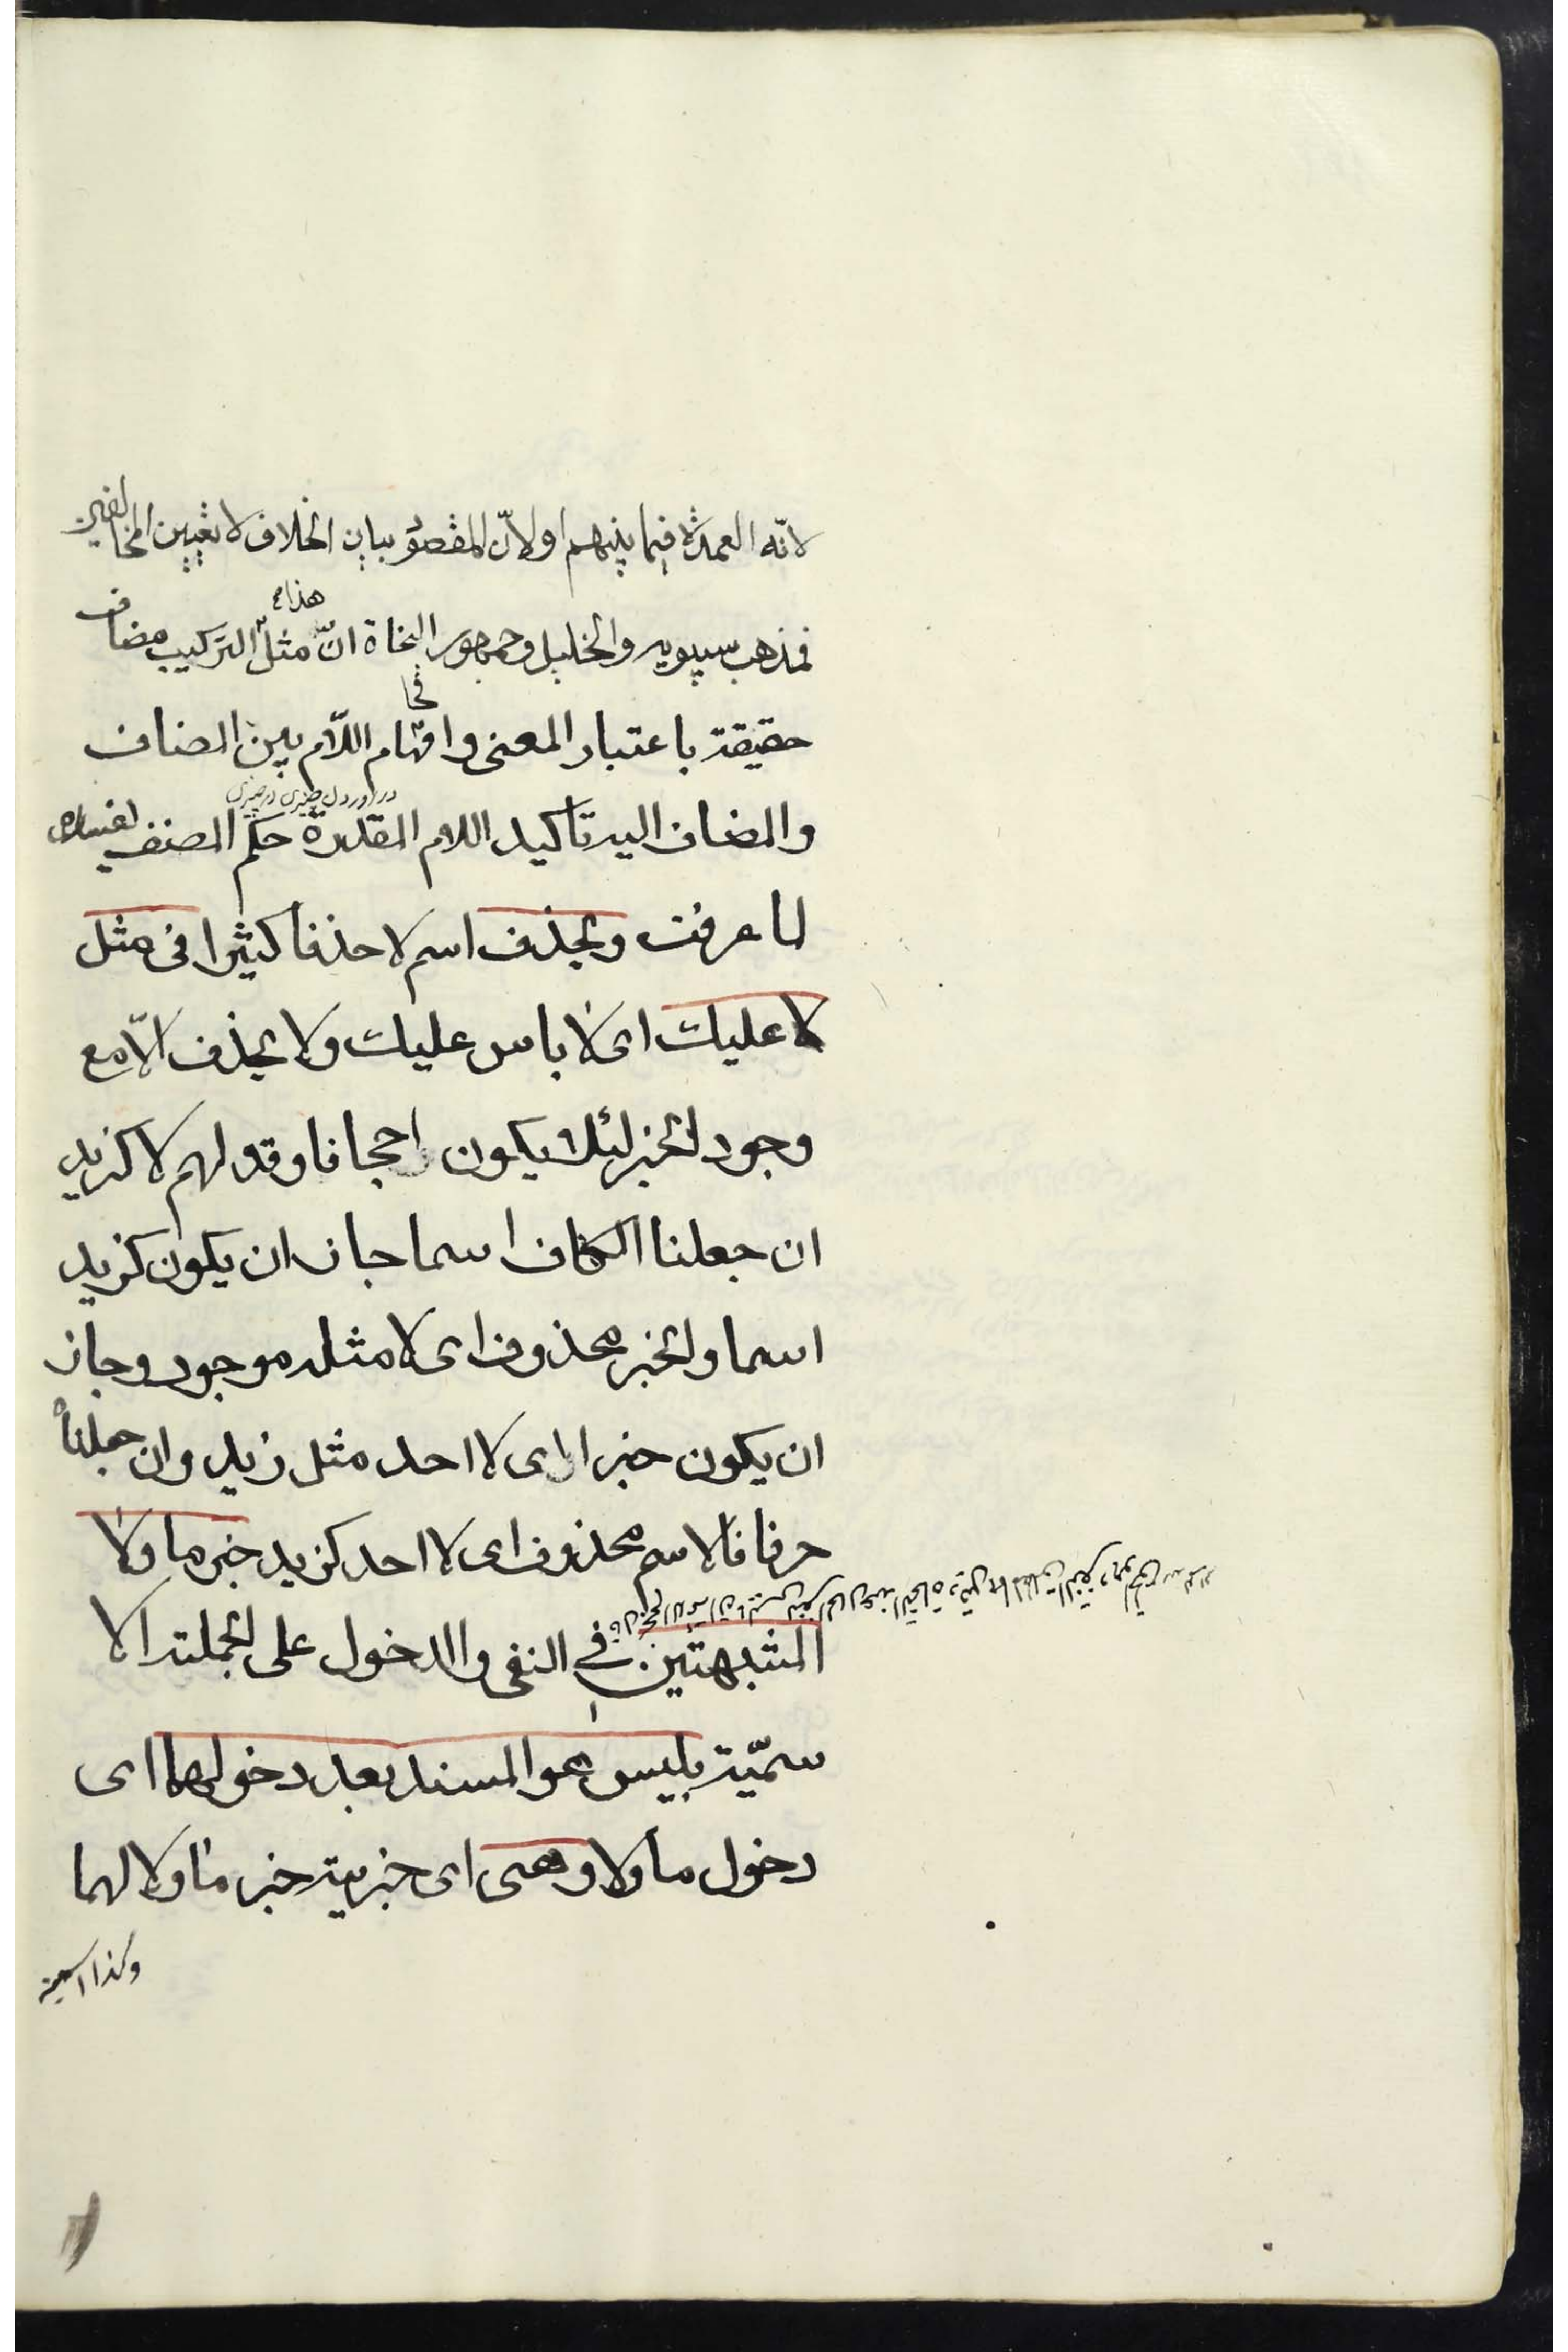 لانّه العمدة فيما بينهم او لانّ المقصود بيان الخلاف لا تعيين المخالفين
فمذهب سيبويه والخليل وجمهور النحاة انّ مثل هذا التركيب مضاف
حقيقة باعتبار المعنى واقحام اللّام بين المضاف
والمضاف اليه تاكيد اللام المقدرة حكم المصنف بفساده
لما عرفت ويحذف اسم لا حذفا كثيرا فى مثل
لا عليك اى لا باس عليك ولا يحذف الّا مع
وجود الخبر لئلا يكون اجحافا وقولهم لا كزيد
ان جعلنا الكاف اسما جاز ان يكون كزيد
اسما والخبر محذوف اى لا مثله موجود وجاز
ان يكون خبرا اى لا احد مثل زيد وان جعلناه
حرفا فالاسم محذوف اى لا احد كزيد خبر ما ولا
المشبهتين في النفى والدخول على الجملة الا
سميّة بليس هو المسند بعد دخولهما اى
دخول ما ولا وهى اى خبرية خبر ما ولا لهما
وكذا اسمية